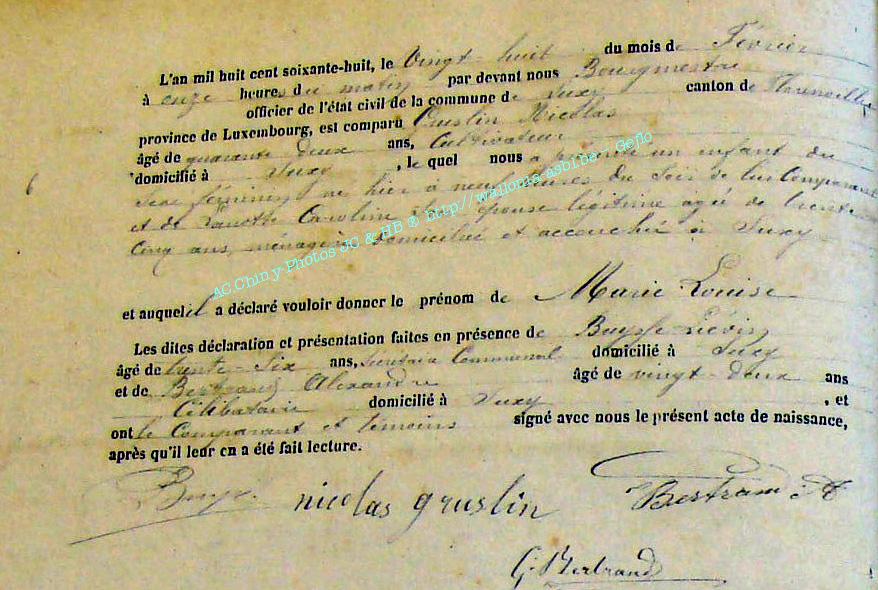 L'an mil huit cent soixante-huit, le Vingt-huit du mois de Février
à onze heures du matin par devant nous Bourgmestre
officier de l'état civil de la commune de Juxy canton de
province de Luxembourg, est comparu Gruslin Nicolas
âgé de quarante deux ans, Cultivateur
domicilié à Juxy, le quel nous a présenté un enfant du
6
sexe féminin, né hier à neuf heures du Soir de lui Comparant
et de Caroline Son épouse légitime agée de trente
Cinq ans, ménagère domiciliée et accouchée à Juxy
et auquel il a déclaré vouloir donner le prénom de Marie Louise
Les dites déclaration et présentation faites en présence de Buysse Liévin
âgé de trente-Six ans, Secrétaire Communal domicilié à Juxy
et de Bertrand Alexandre âgé de vingt-deux ans
Célibataire domicilié à Juxy, et
ont le Comparant et témoins signé avec nous le présent acte de naissance,
après qu'il leur en a été fait lecture.
nicolas gruslin
Bertrand A
G. Bertrand
AC.Chiny-Photos JC & HB ® http://wallonia.asbl.be - Geflo